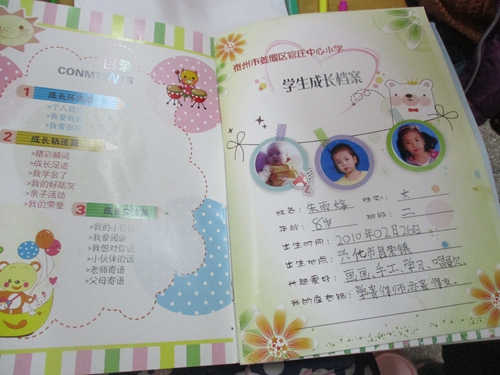 目录
CONMTENTS
1 成长环境
>个人
>我爱我
>我爱班
2 成长精选
>精彩瞬间
>成长足迹
>我学会了
>我的好朋友
>亲子活动
>我的荣誉
3 成长
>我的小
>我爱阅读
>我想对你说
>小伙伴的话
>老师寄语
>父母寄语
泰州市姜堰区官庄中心小学
学生成长档案
姓名: 朱雨婷 性别: 女
年龄: 8岁 班级: 二
出生时间: 2010年02月26日
出生地点: 兴化市昌荣镇
兴趣爱好: 画画、手工、学习、唱歌
我的座右铭: 学贵得师,亦贵得友。